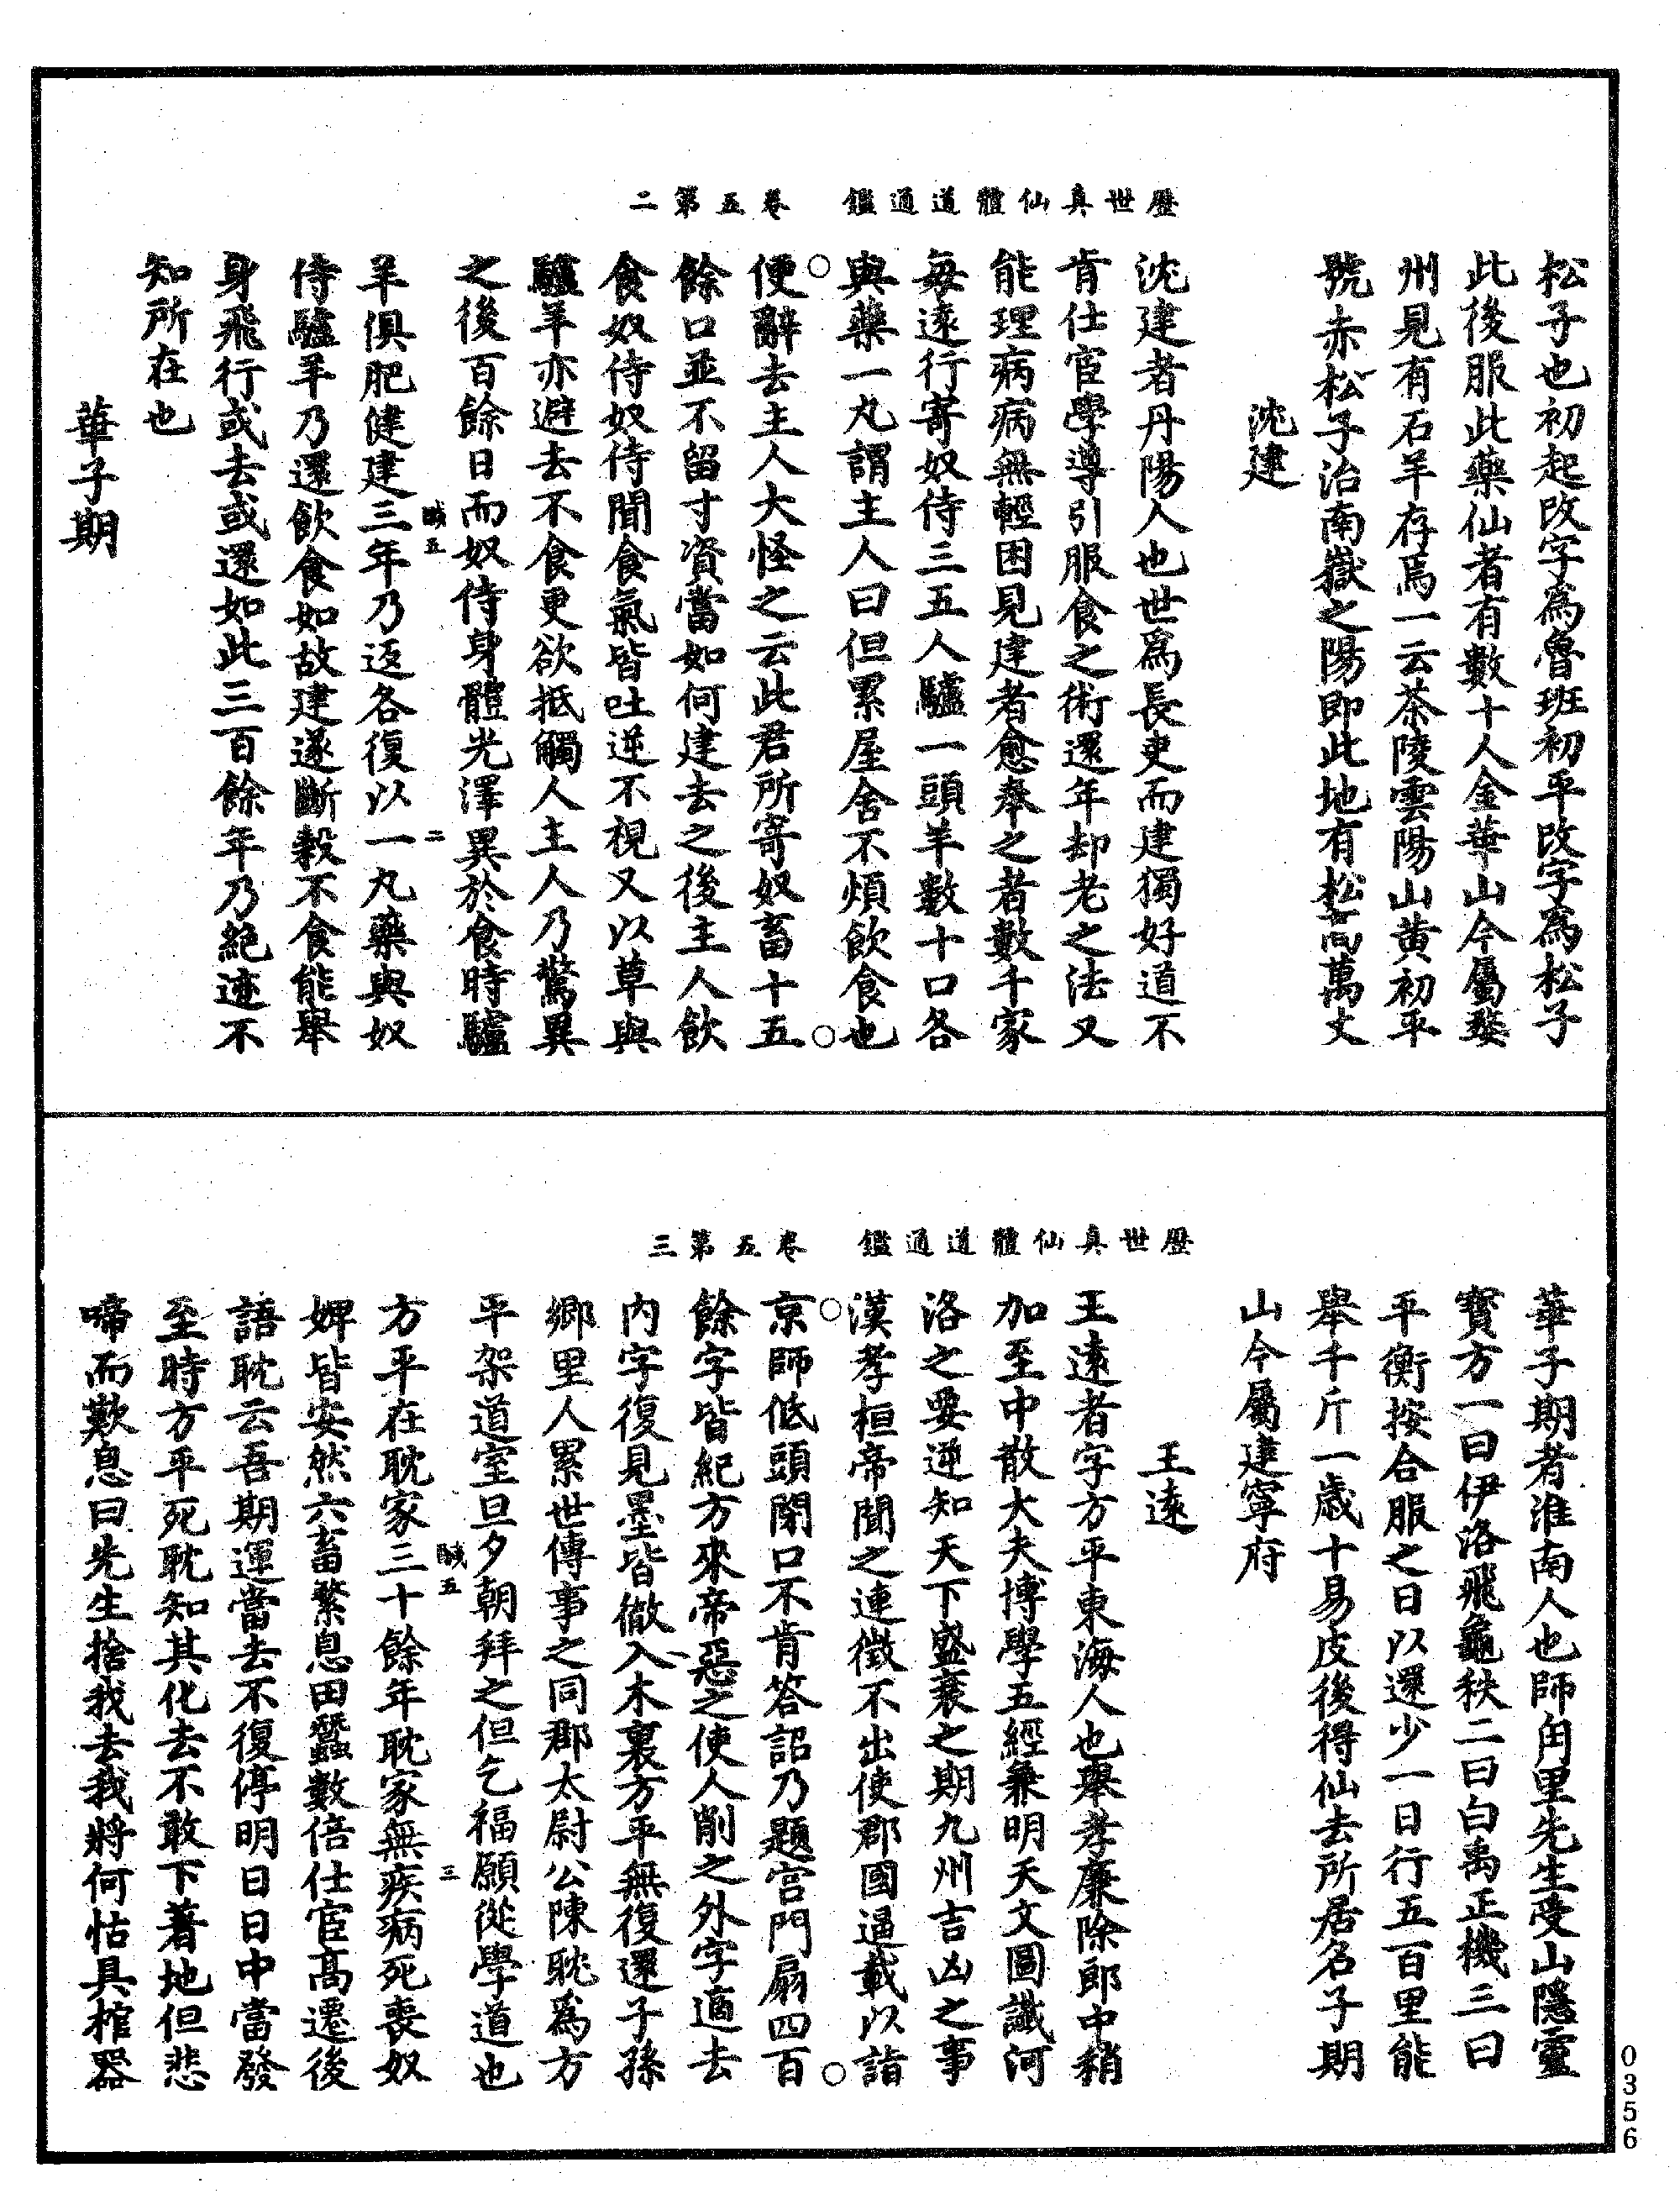 歷世真仙體道通鑑　卷五第二
松子也初起改字為魯班初平改字為松子
此後服此藥仙者有數十人金華山今屬婺
州見有石羊存焉一云茶陵雲陽山黃初平
號赤松子治南嶽之陽即此地有松高萬丈
沈建
沈建者丹陽人也世爲長吏而建獨好道不
肯仕宦學導引服食之術還年却老之法又
能理病病無輕困見建者愈奉之者數千家
每遠行寄奴侍三五人驢一頭羊數十口各
與藥一丸謂主人曰但累屋舍不煩飲食也
便辭去主人大怪之云此君所寄奴畜十五
餘口並不留寸資當如何建去之後主人飲
食奴侍奴侍聞食氣皆吐逆不視又以草與
驢羊亦避去不食更欲抵觸人主人乃驚異
之後百餘日而奴侍身體光澤異於食時驢
五　二
羊俱肥健建三年乃返各復以一丸藥與奴
侍驢羊乃還飲食如故建遂斷穀不食能舉
身飛行或去或還如此三百餘年乃絕迹不
知所在也
華子期
歷世真仙體道通鑑　卷五第三
華子期者淮南人也師甪里先生受山隱靈
寶方一曰伊洛飛龜秩二曰白禹正機三曰
平衡按合服之日以還少一日行五百里能
舉千斤一歲十易皮後得仙去所居名子期
山今屬建寧府
王遠
王遠者字方平東海人也舉孝廉除郎中稍
加至中散大夫博學五經兼明天文圖讖河
洛之要逆知天下盛衰之期九州吉凶之事
漢孝桓帝聞之連徵不出使郡國逼載以詣
京師低頭閉口不肯答詔乃題宮門扇四百
餘字皆紀方來帝惡之使人削之外字適去
內字復見墨皆徹入木裏方平無復還子孫
鄉里人累世傳事之同郡太尉公陳耽爲方
平架道室旦夕朝拜之但乞福願從學道也
五　三
方平在耽家三十餘年耽家無疾病死喪奴
婢皆安然六畜繁息田蠶數倍仕宦高遷後
語耽云吾期運當去不復停明日日中當發
至時方平死耽知其化去不敢下著地但悲
啼而歎息曰先生捨我去我將何怙具棺器
0356